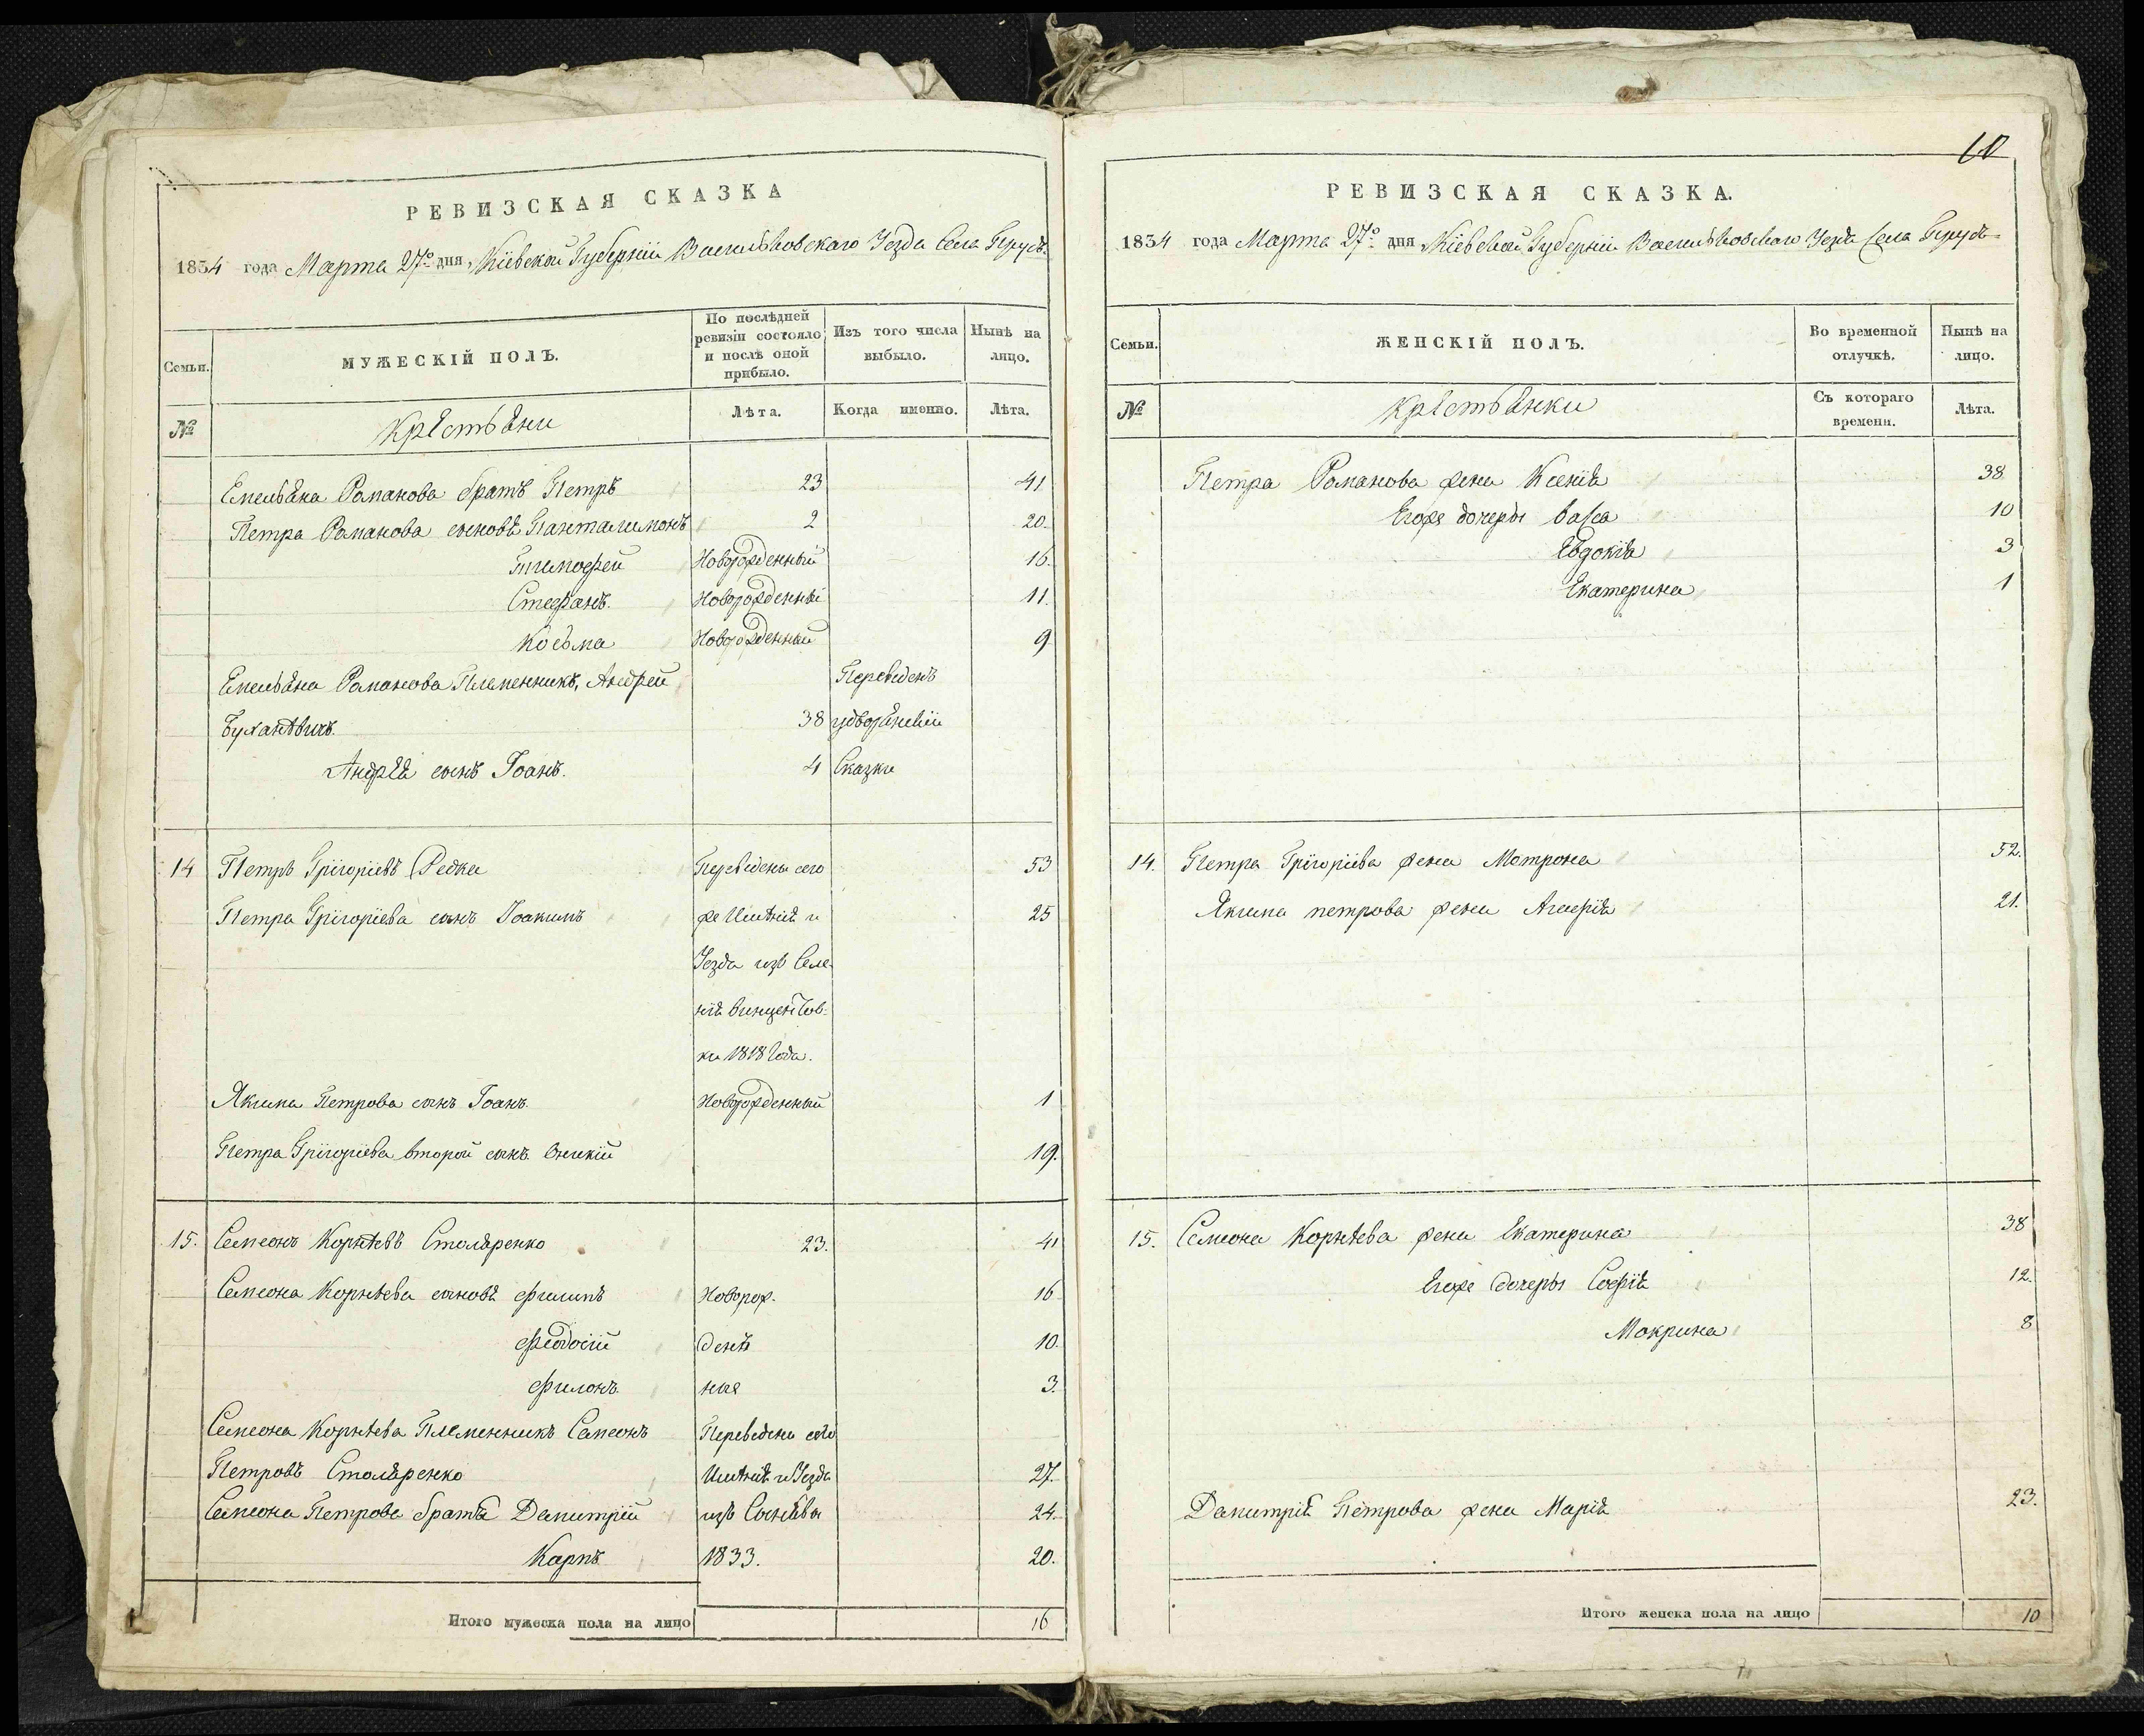 РЕВИЗСКАЯ СКАЗКА
1834 года Марта 27го дня, Кіевской Губерніи Васильковскаго Уезда Села
Семьи.
МУЖЕСКІЙ ПОЛЪ.
По послѣдней ревизіи состояло и послѣ оной прибыло.
Изъ того числа выбыло.
Нынѣ на лицо.
№
Крестьяни
Лѣта.
Когда именно.
Лѣта.
Емельяна Романова братъ Петръ 23 41
Петра Романова сыновя Панталимонъ 2 20
Тимофей Новорожденный 16.
Стефанъ. Новорожденный 11.
Косьма Новорожденный 9
Емельяна Романова Племенникъ, Андрей Переведенъ
38
Андрея сынъ Іоанъ. 4 Сказки
14 Петръ Григоріевъ Редка Переведены сего 53
Петра Григоріева сынъ Іоакимъ же Имѣнія и 25
Уезда изъ Селе-
нія Винцентов-
ки 1818 года.
Якима Петрова сынъ Іоанъ. Новорожденный 1
Петра Григоріева второй сынъ 19.
15. Семеонъ Корнѣевъ Столяренко 23. 41
Семеона Корнѣева сыновя Филипъ Новорож- 16
Феодосій денъ 10.
Филонъ. ные 3.
Семеона Корнѣева Племенникъ Семеонъ Переведены сего
Петровъ Столяренко Имѣнія и Уезда 27.
Семеона Петрова братья Демитрій изъ 24.
Карпъ 1833. 20.
Итого мужеска пола на лицо 16
10
РЕВИЗСКАЯ СКАЗКА.
1834 года Марта 27го дня Кіевской Губерніи Васильковскаго Уезда Села
Семьи.
ЖЕНСКІЙ ПОЛЪ.
Во временной отлучкѣ.
Нынѣ на лицо.
№
Крестьянки
Съ котораго времени.
Лѣта.
Петра Романова жена Ксенія 38
Егоже дочеры Васса 10
Евдокія 3
Екатерина 1
14. Петра Григоріева жена Матрона 52.
Якима петрова жена 21.
15. Семеона Корнѣева жена Екатерина 38
Егоже дочеры Софія 12.
Мокрина 8
Демитрія Петрова жена Марія 23.
Итого женска пола на лицо 10